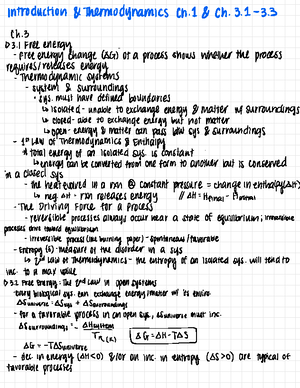 Introduction & Thermodynamics Ch.1 & Ch. 3.1-3.3
Ch.3
3.1 Free energy
- Free energy change (ΔG) of a process shows whether the process
requires/releases energy
- Thermodynamic systems
- system & surroundings
- sys. must have defined boundaries
↳ isolated - unable to exchange energy & matter w/ surroundings
↳ closed - able to exchange energy but not matter
↳ open - energy & matter can pass b/w sys & surroundings
- 1st Law of Thermodynamics & Enthalpy
* total energy of an isolated sys. is constant
↳ energy can be converted from one form to another but is conserved
in a closed sys
- the heat evolved in a rxn @ constant pressure = change in enthalpy (ΔH)
↳ neg. ΔH - rxn releases energy // ΔH = H
- The Driving Force for a Process
- reversible processes always occur near a state of equilibrium; irreversible
processes drive toward equilibrium
- irreversible process (like burning paper) - spontaneous/favorable
- Entropy (S) - measure of the disorder in a sys
↳ 2nd Law of Thermodynamics - the entropy of an isolated sys. will tend to
inc. to a max value
3.2 Free Energy: The 2nd Law in open systems
- every biological sys. can exchange energy/matter w/ its enviro.
ΔSuniverse = ΔSsys + ΔSsurroundings
- for a favorable process in an open sys, ΔSuniverse must inc.
ΔSsurroundings = - ΔHsystem
T (K)
ΔG = ΔH - TΔS
ΔG = -TΔSuniverse
- dec. in energy (ΔH<0) &/or an inc. in entropy (ΔS>0) are typical of
favorable processes